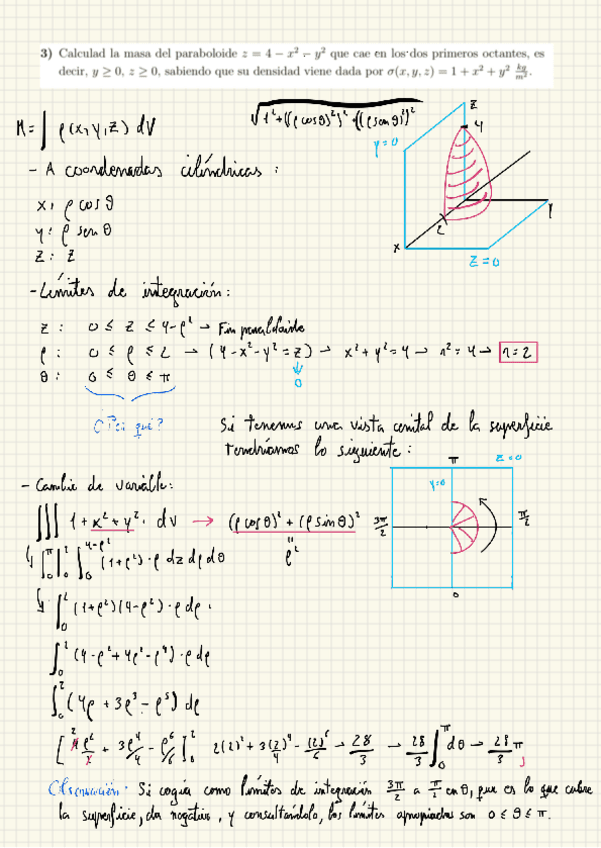 3) Calculad la masa del paraboloide z = 4 − x² − y² que cae en los dos primeros octantes, es
decir, y ≥ 0, z ≥ 0, sabiendo que su densidad viene dada por σ(x, y, z) = 1 + x² + y² kg/m³.
M = ∫ ρ(x,y,z) dV
√1²+((ρ cosθ)²)²+((ρ senθ)²)²
z
4
y=0
2
x
y
z=0
- A coordenadas cilíndricas:
x: ρ cos θ
y: ρ sen θ
z: z
- Límites de integración:
z: 0 ≤ z ≤ 4-ρ² → Fin paraboloide
ρ: 0 ≤ ρ ≤ 2 → (4-x²-y²=z) → x²+y²=4 → r²=4 → r=2
θ: 0 ≤ θ ≤ π
0
¿Por qué?
Si tenemos una vista cenital de la superficie
tendríamos lo siguiente:
π
z=0
y=0
3π/2
π/2
0
- Cambio de variable:
∫∫∫ 1+x²+y² · dv → (ρ cosθ)² + (ρ sinθ)²
ρ²
∫₀^π ∫₀² ∫₀^(4-ρ²) (1+ρ²)·ρ dz dρ dθ
∫₀² (1+ρ²)(4-ρ²)·ρ dρ ·
∫₀² (4-ρ²+4ρ²-ρ⁴)·ρ dρ
∫₀² (4ρ+3ρ³-ρ⁵) dρ
[2 4ρ²/2 + 3ρ⁴/4 - ρ⁶/6]₀² 2(2)²+3(2)⁴/4-(2)⁶/6 → 28/3 → 28/3 ∫₀^π dθ → 28/3 π
Observación: Si cogía como límites de integración 3π/2 a π/2 en θ, que es lo que cubre
la superficie, da negativo, y consultándolo, los límites apropiados son 0 ≤ θ ≤ π.